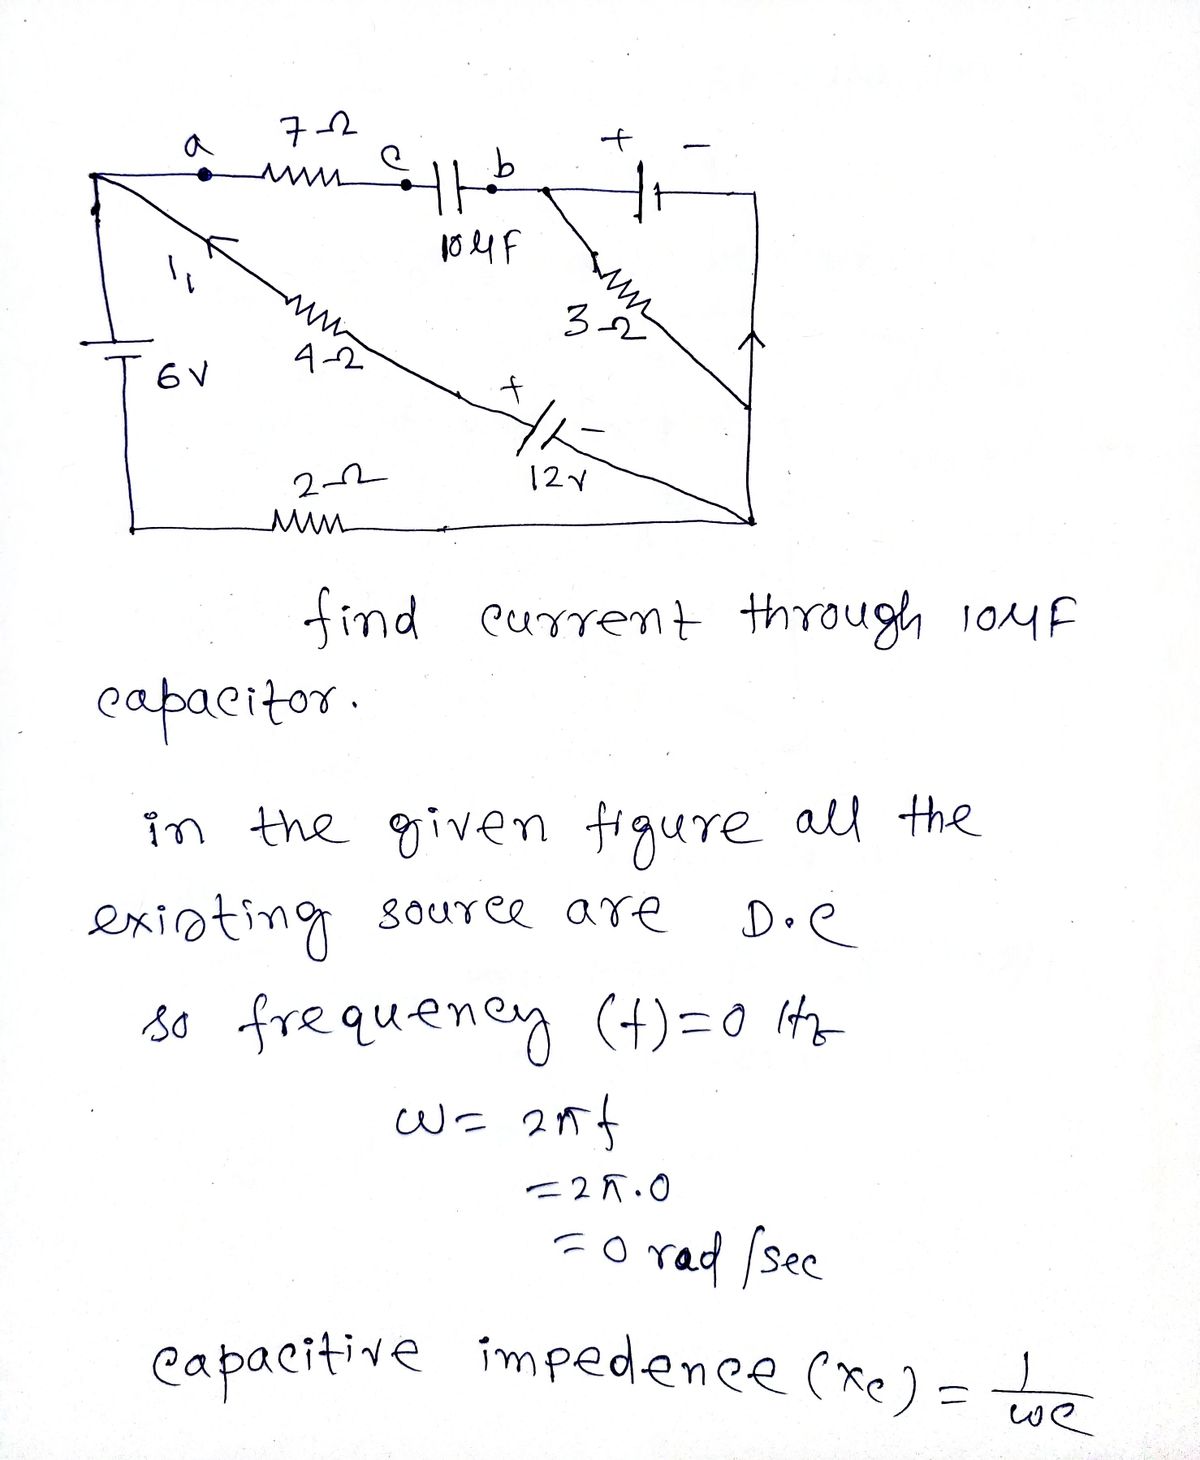 7Ω
a
c
b
+ −
10μF
I₁
3Ω
4Ω
6V
+
−
12V
2Ω
find current through 10μF
capacitor.
in the given figure all the
existing source are D.C
so frequency (f)=0 Hz
ω= 2πf
=2π.0
=0 rad/sec
capacitive impedence (xc) = 1/ωc